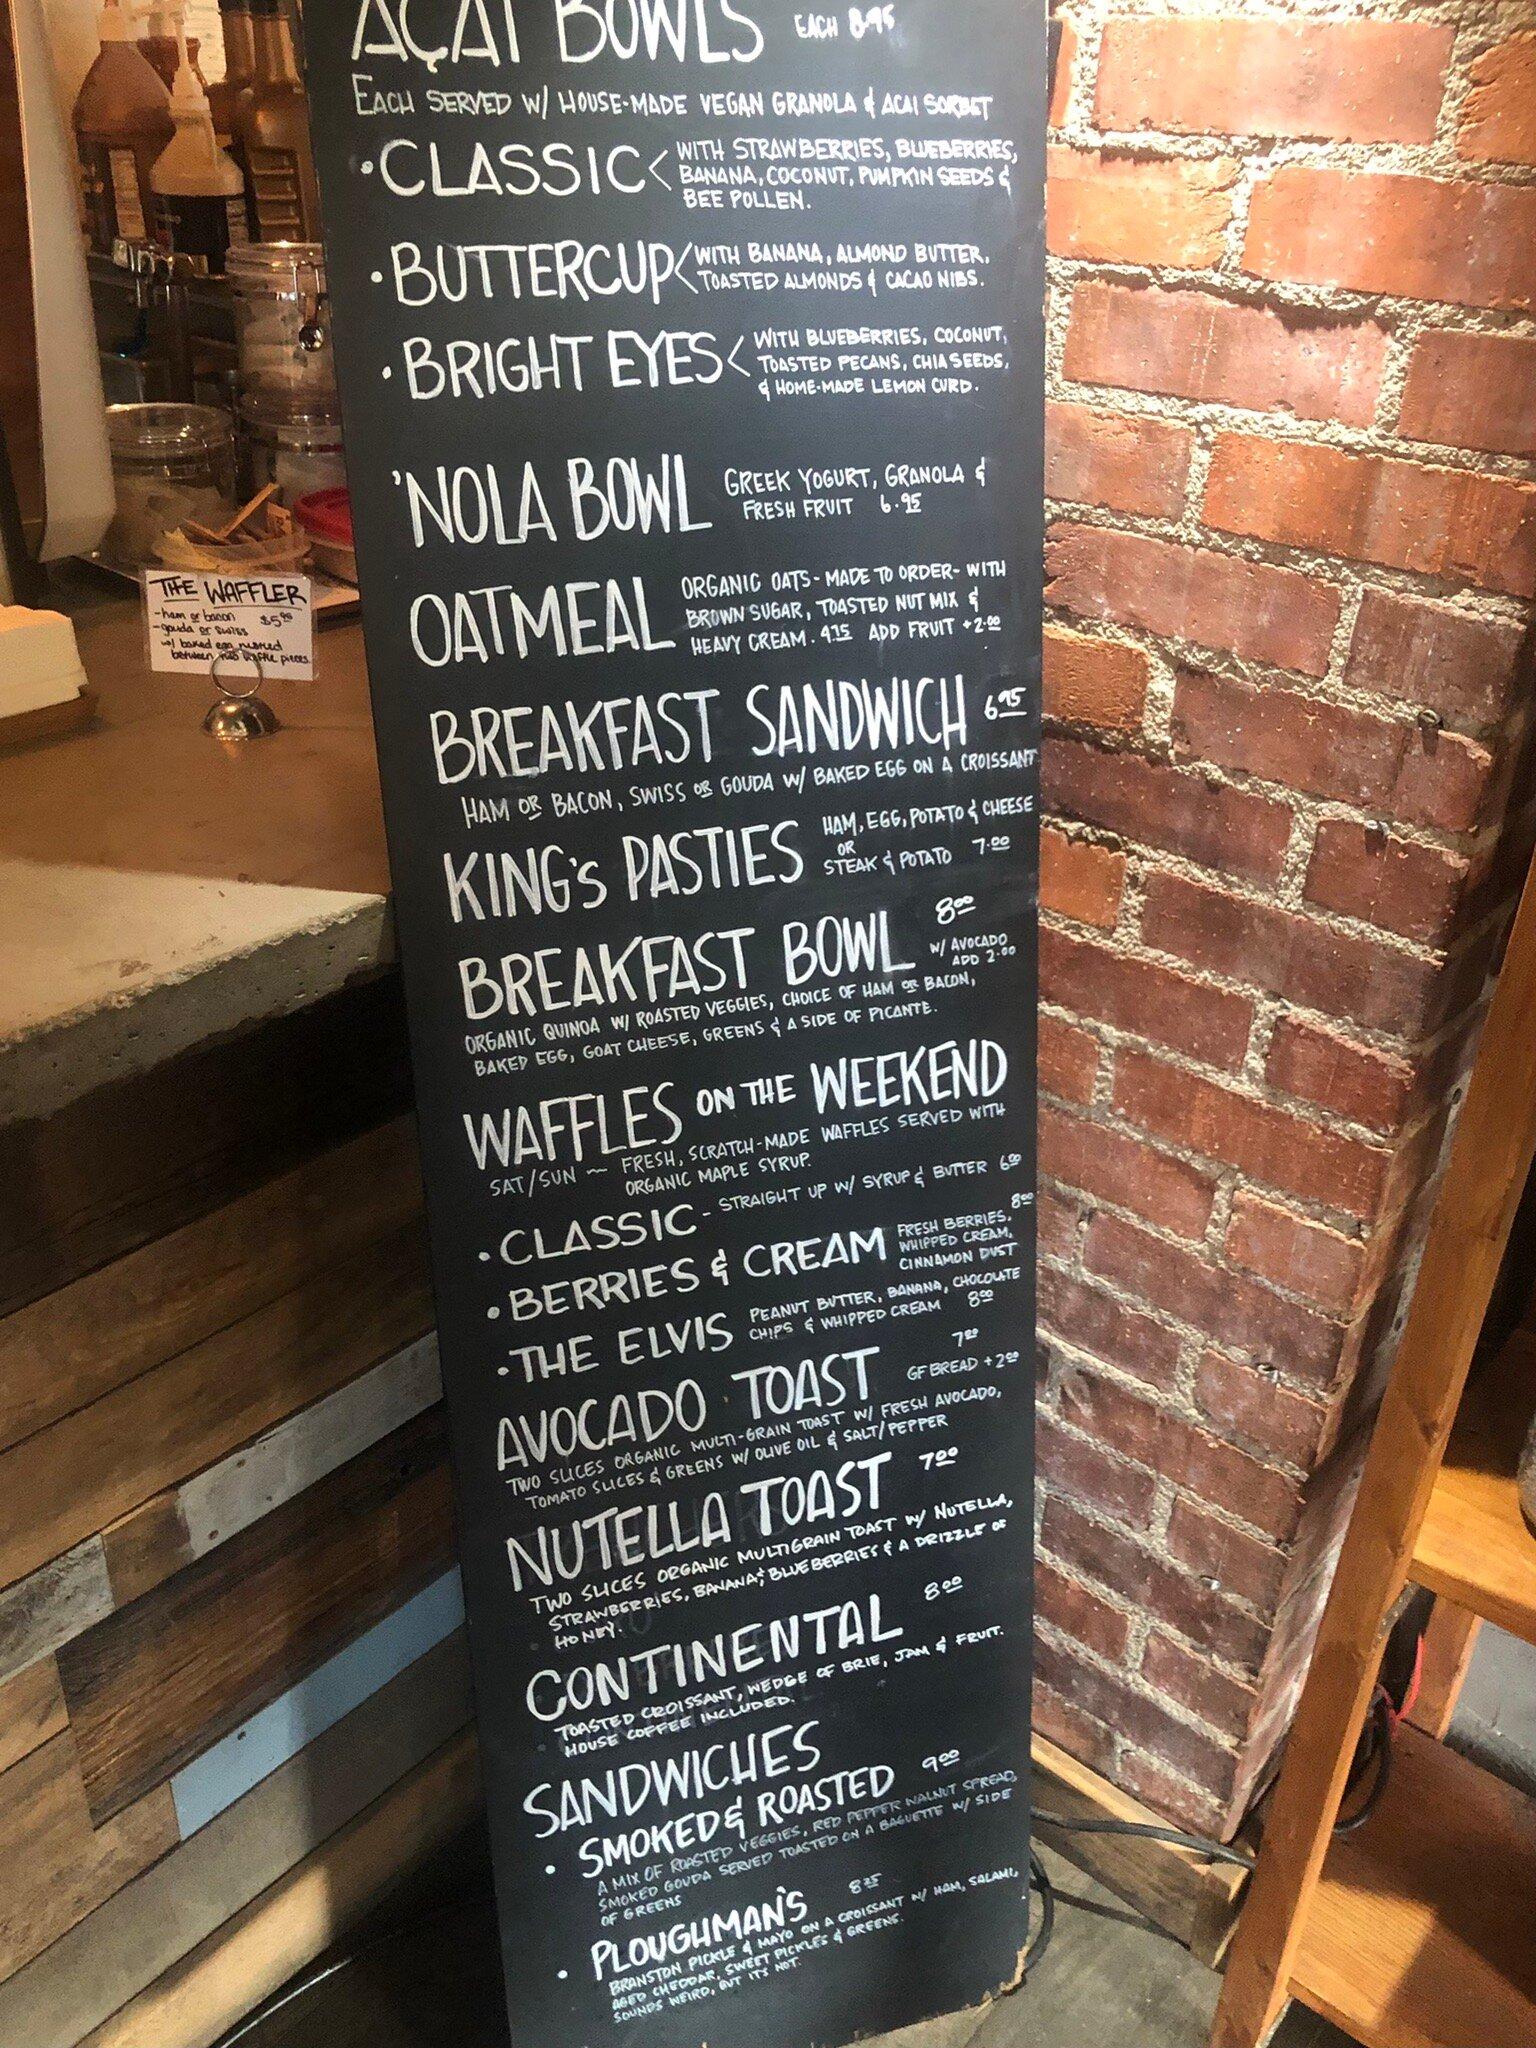 AÇAÍ BOWLS EACH 8.95
EACH SERVED W/ HOUSE-MADE VEGAN GRANOLA & ACAI SORBET
• CLASSIC < WITH STRAWBERRIES, BLUEBERRIES,
BANANA, COCONUT, PUMPKIN SEEDS &
BEE POLLEN.
• BUTTERCUP < WITH BANANA, ALMOND BUTTER,
TOASTED ALMONDS & CACAO NIBS.
• BRIGHT EYES < WITH BLUEBERRIES, COCONUT,
TOASTED PECANS, CHIA SEEDS,
& HOME-MADE LEMON CURD.
'NOLA BOWL GREEK YOGURT, GRANOLA &
FRESH FRUIT 6.95
OATMEAL ORGANIC OATS - MADE TO ORDER - WITH
BROWN SUGAR, TOASTED NUT MIX &
HEAVY CREAM. 4.75 ADD FRUIT +2.00
BREAKFAST SANDWICH 6.95
HAM OR BACON, SWISS OR GOUDA W/ BAKED EGG ON A CROISSANT
KING'S PASTIES HAM, EGG, POTATO & CHEESE
OR
STEAK & POTATO 7.00
BREAKFAST BOWL 8.00
W/ AVOCADO
ADD 2.00
ORGANIC QUINOA W/ ROASTED VEGGIES, CHOICE OF HAM OR BACON,
BAKED EGG, GOAT CHEESE, GREENS & A SIDE OF PICANTE.
WAFFLES ON THE WEEKEND
SAT/SUN ~ FRESH, SCRATCH-MADE WAFFLES SERVED WITH
ORGANIC MAPLE SYRUP.
• CLASSIC - STRAIGHT UP W/ SYRUP & BUTTER 6.00
• BERRIES & CREAM FRESH BERRIES, 8.00
WHIPPED CREAM,
CINNAMON DUST
• THE ELVIS PEANUT BUTTER, BANANA, CHOCOLATE
CHIPS & WHIPPED CREAM 8.00
AVOCADO TOAST 7.00
GF BREAD +2.00
TWO SLICES ORGANIC MULTI-GRAIN TOAST W/ FRESH AVOCADO,
TOMATO SLICES & GREENS W/ OLIVE OIL & SALT/PEPPER
NUTELLA TOAST 7.00
TWO SLICES ORGANIC MULTIGRAIN TOAST W/ NUTELLA,
STRAWBERRIES, BANANA & BLUEBERRIES & A DRIZZLE OF
HONEY.
CONTINENTAL 8.00
TOASTED CROISSANT, WEDGE OF BRIE, JAM & FRUIT.
HOUSE COFFEE INCLUDED.
SANDWICHES
• SMOKED & ROASTED 9.00
A MIX OF ROASTED VEGGIES, RED PEPPER WALNUT SPREAD,
SMOKED GOUDA SERVED TOASTED ON A BAGUETTE W/ SIDE
OF GREENS
• PLOUGHMAN'S
BRANSTON PICKLE & MAYO ON A CROISSANT W/ HAM, SALAMI,
AGED CHEDDAR, SWEET PICKLES & GREENS.
SOUNDS WEIRD, BUT ITS NOT.
THE WAFFLER
-ham or bacon $5.00
-gouda or swiss
w/ baked egg nestled
between two waffle pieces